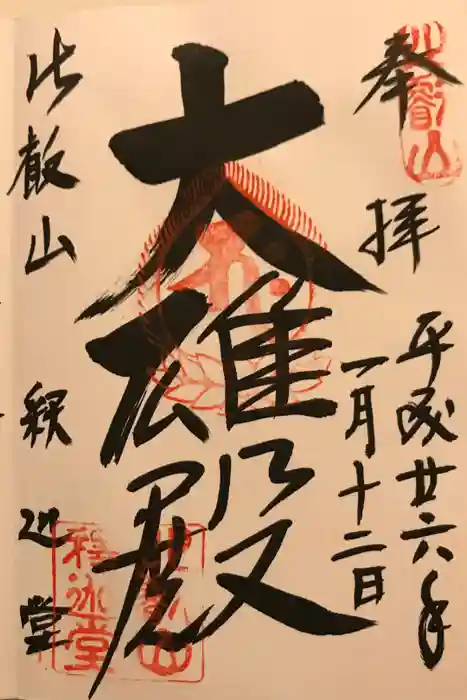 奉拝
平成廿六年
一月十二日
大雄殿
比叡山 釈迦堂
比叡山
比叡山
釋迦堂